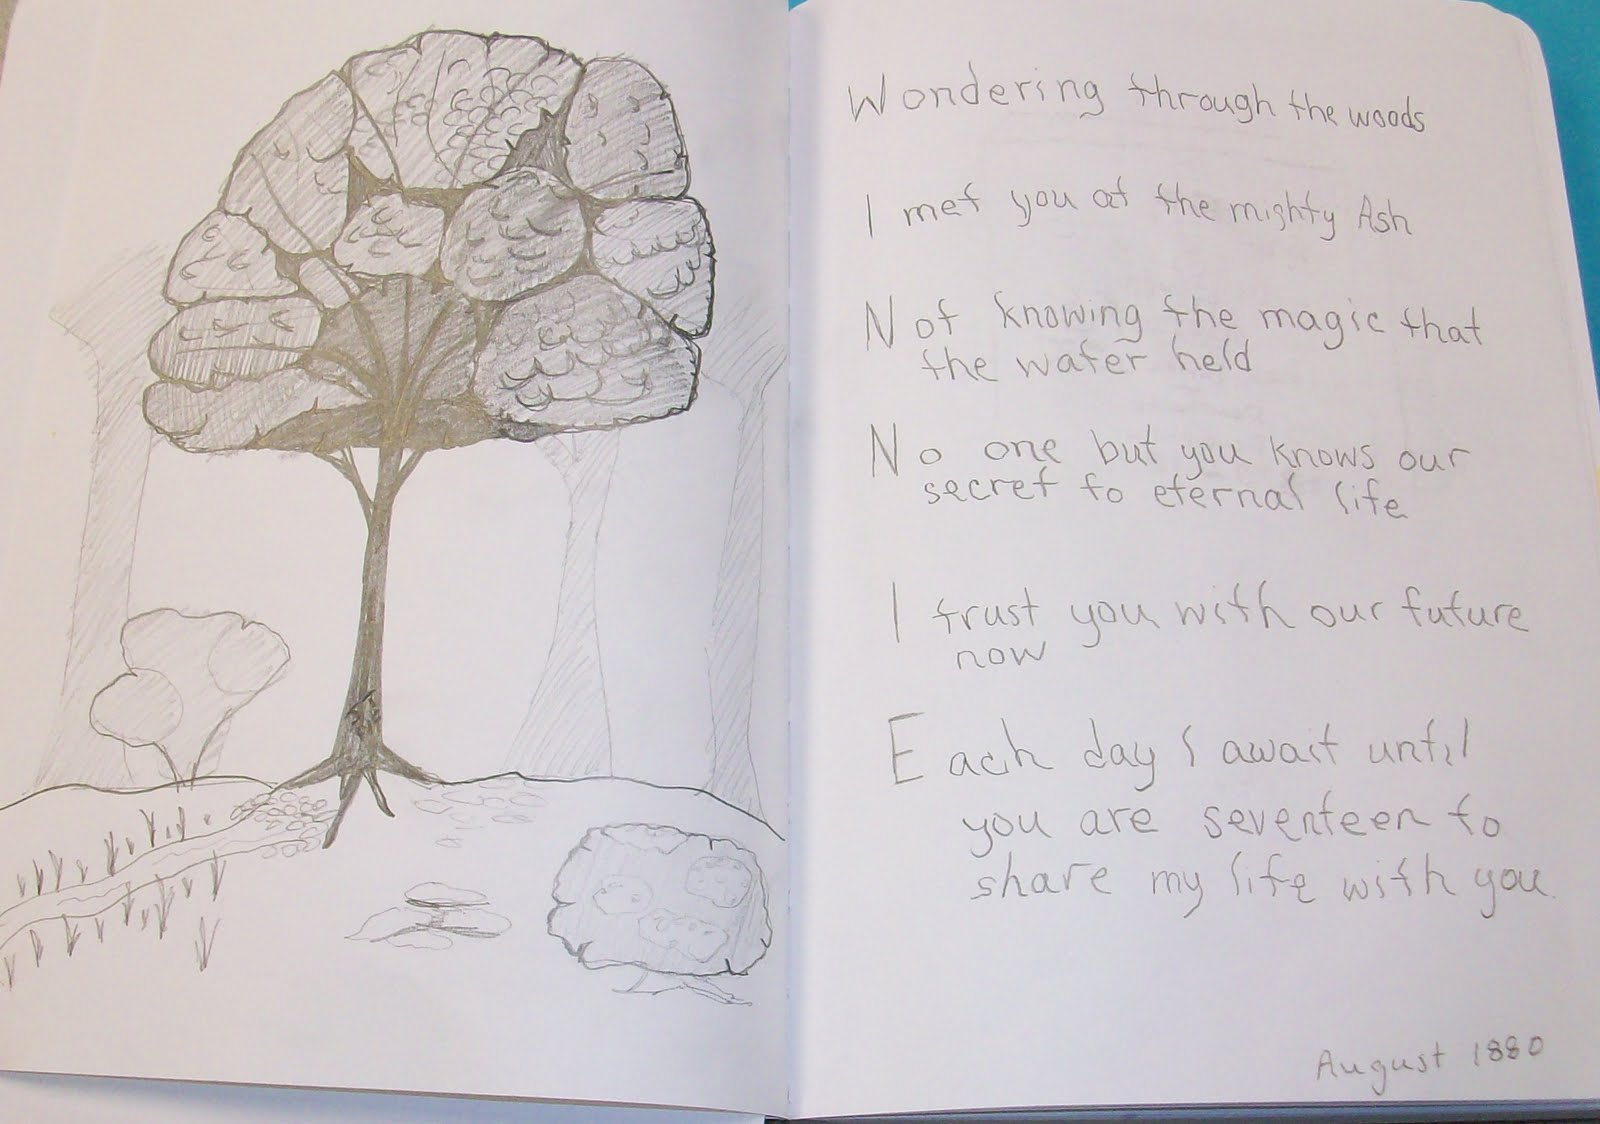 Wondering through the woods
I met you at the mighty Ash
Not knowing the magic that
the water held
No one but you knows our
secret to eternal life
I trust you with our future
now
Each day I await until
you are seventeen to
share my life with you.
August 1880